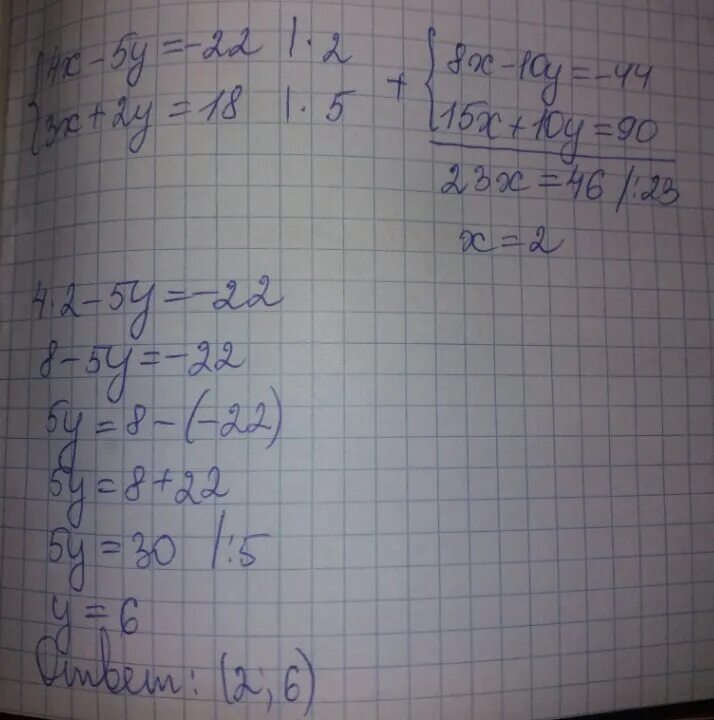 4x - 5y = -22 | · 2
3x + 2y = 18 | · 5
+ { 8x - 10y = -44
15x + 10y = 90
23x = 46 /:23
x = 2
4·2 - 5y = -22
8 - 5y = -22
5y = 8 - (-22)
5y = 8 + 22
5y = 30 /:5
y = 6
Ответ: (2; 6)